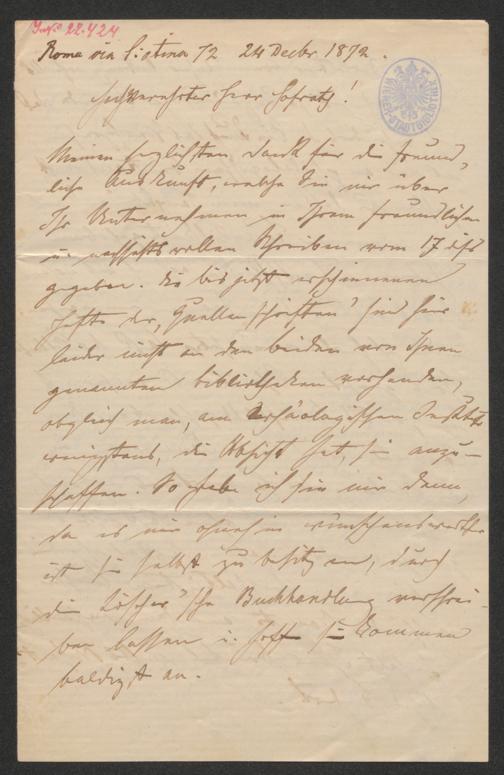 J.No 22.424
Roma via Sistina 72 24 Decbr 1872.
WIENER STADTBIBLIOTHEK
Hochverehrter Herr Hofrath!
Meinen herzlichsten Dank für die freund-
liche Auskunft, welche Sie mir über
Ihr Unternehmen in Ihrem freundlichen
u. vollen Schreiben vom 17 dss
gegeben. Die bis jetzt erschienenen
Hefte der „Quellenschriften" sind hier
leider nicht in den beiden von Ihnen
genannten Bibliotheken vorhanden,
obgleich man, am Archäologischen Institut
wenigstens, die Absicht hat, sie anzu-
schaffen. So habe ich sie mir denn,
da es mir ohnehin wünschenswerther
ist sie selbst zu besitzen, durch
die Löscher'sche Buchhandlung verschrei-
ben lassen u. hoffe sie kommen
baldigst an.